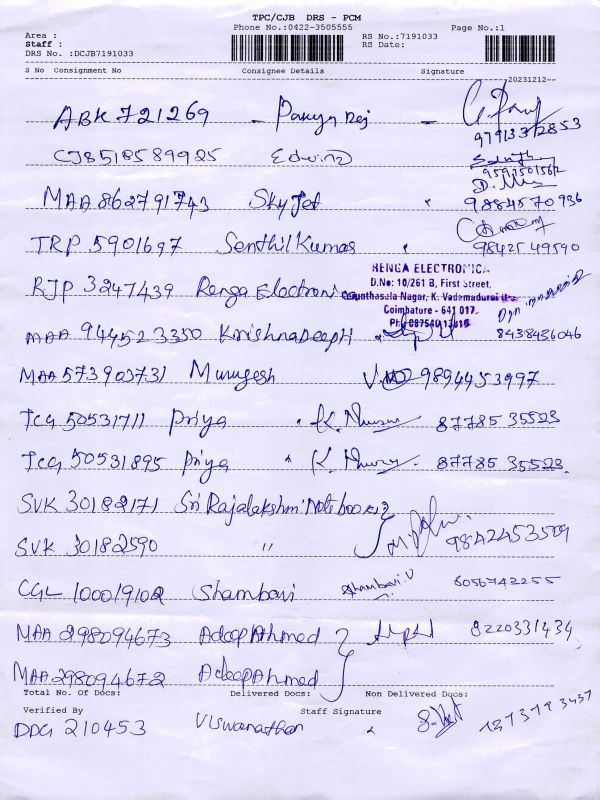 TPC/CJB DRS - PCM
Phone No.:0422-3505555
Page No.:1
Area :
Staff :
DRS No. :DCJB7191033
RS No.:7191033
RS Date:
S No Consignment No Consignee Details Signature
20231212
ABK 721269 -
CJB518589925 Edwin
MAA 862791743 SkyJet 9884570936
TRP 5901697 Senthil Kumar 98425 49590
RENGA ELECTRONICA
D.No: 10/261 B, First Street,
Nagar, K. Vadamadurai
Coimbatore - 641 017.
RJP 3247439 Renga Electronica
MAA 944523350 KrishnaDeepth 8438436046
MAA 573903731 Murugesh 9894453997
TCG 50531711 Priya 87785 35523
TCG 50531895 Priya 87785 35523
SVK 30182171 Sri Rajalakshmi Notebook
SVK 30182590 " 9842453509
CGL 100019102 Shambavi Shambavi.V 8056742255
MAA 298094673 AdeepAhmed 8220331434
MAA 298094672 AdeepAhmed
Total No. Of Docs: Delivered Docs: Non Delivered Docs:
Verified By Staff Signature
DDG 210453 Viswanathan